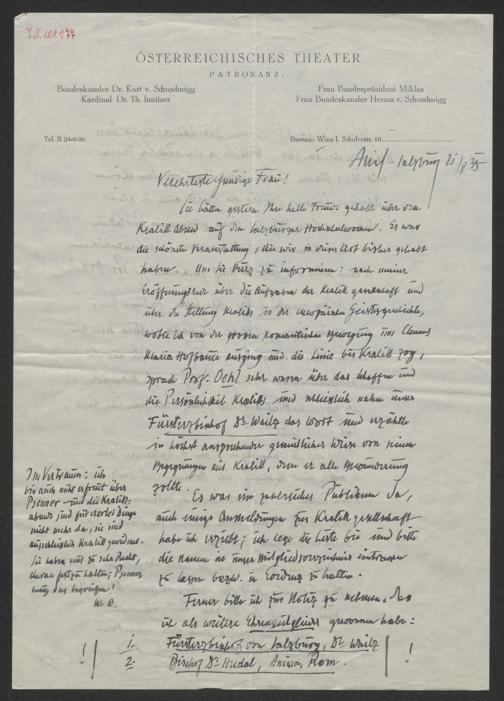 ÖSTERREICHISCHES THEATER
PATRONANZ:
Bundeskanzler Dr. Kurt v. Schuschnigg
Kardinal Dr. Th. Innitzer
Frau Bundespräsident Miklas
Frau Bundeskanzler Herma v. Schuschnigg
Tel. R 24-0-20
Bureau: Wien I. Schulerstr. 10
Anif - Salzburg 21/8 35
Verehrteste gnädige Frau!
Sie hätten gestern Ihre helle Freude gehabt über den
Kralik Abend auf den Salzburger Hochschulwochen. Es war
die schönste Veranstaltung, die wir in dieser Art bisher gehabt
haben. Um Sie kurz zu informieren: nach meiner
Eröffnungsrede über die Aufgaben der Kralik gesellschaft und
über die Stellung Kraliks in der europäischen Geistesgeschichte,
wobei ich von der grossen romantischen Bewegung um Clemens
Maria Hofbauer ausging und die Linie bis Kralik zog,
sprach Prof. Oehl sehr warm über das Schaffen und
die Persönlichkeit Kraliks und schliesslich nahm unser
Fürsterzbischof Dr Waitz das Wort und erzählte
in höchst ansprechender gemütlicher Weise von seinen
Begegnungen mit Kralik, dem er alle Bewunderung
zollte.
Es war ein zahlreiches Publikum da,
auch einige Anmeldungen zur Kralik gesellschaft
habe ich erzielt; ich lege die Liste bei und bitte
die Namen in unser Mitgliedsverzeichnis eintragen
zu lassen bezw. in Evidenz zu halten.
Ferner bitte ich zur Notiz zu nehmen, das
ich als weitere Ehrenmitglieder gewonnen habe:
1. Fürsterzbischof von Salzburg, Dr. Waitz
2. Bischof Dr Hudal, Anima, Rom.
! !
Im Vertrauen: ich
bin auch nicht erfreut über
Pjenner und die Kralik
abende sind für derlei Dinge
nicht mehr da, sie sind
ausschliesslich Kralik gewidmet.
Sie haben nur zu sehr Recht,
daran festzuhalten; Pjenner
muss das begreifen!